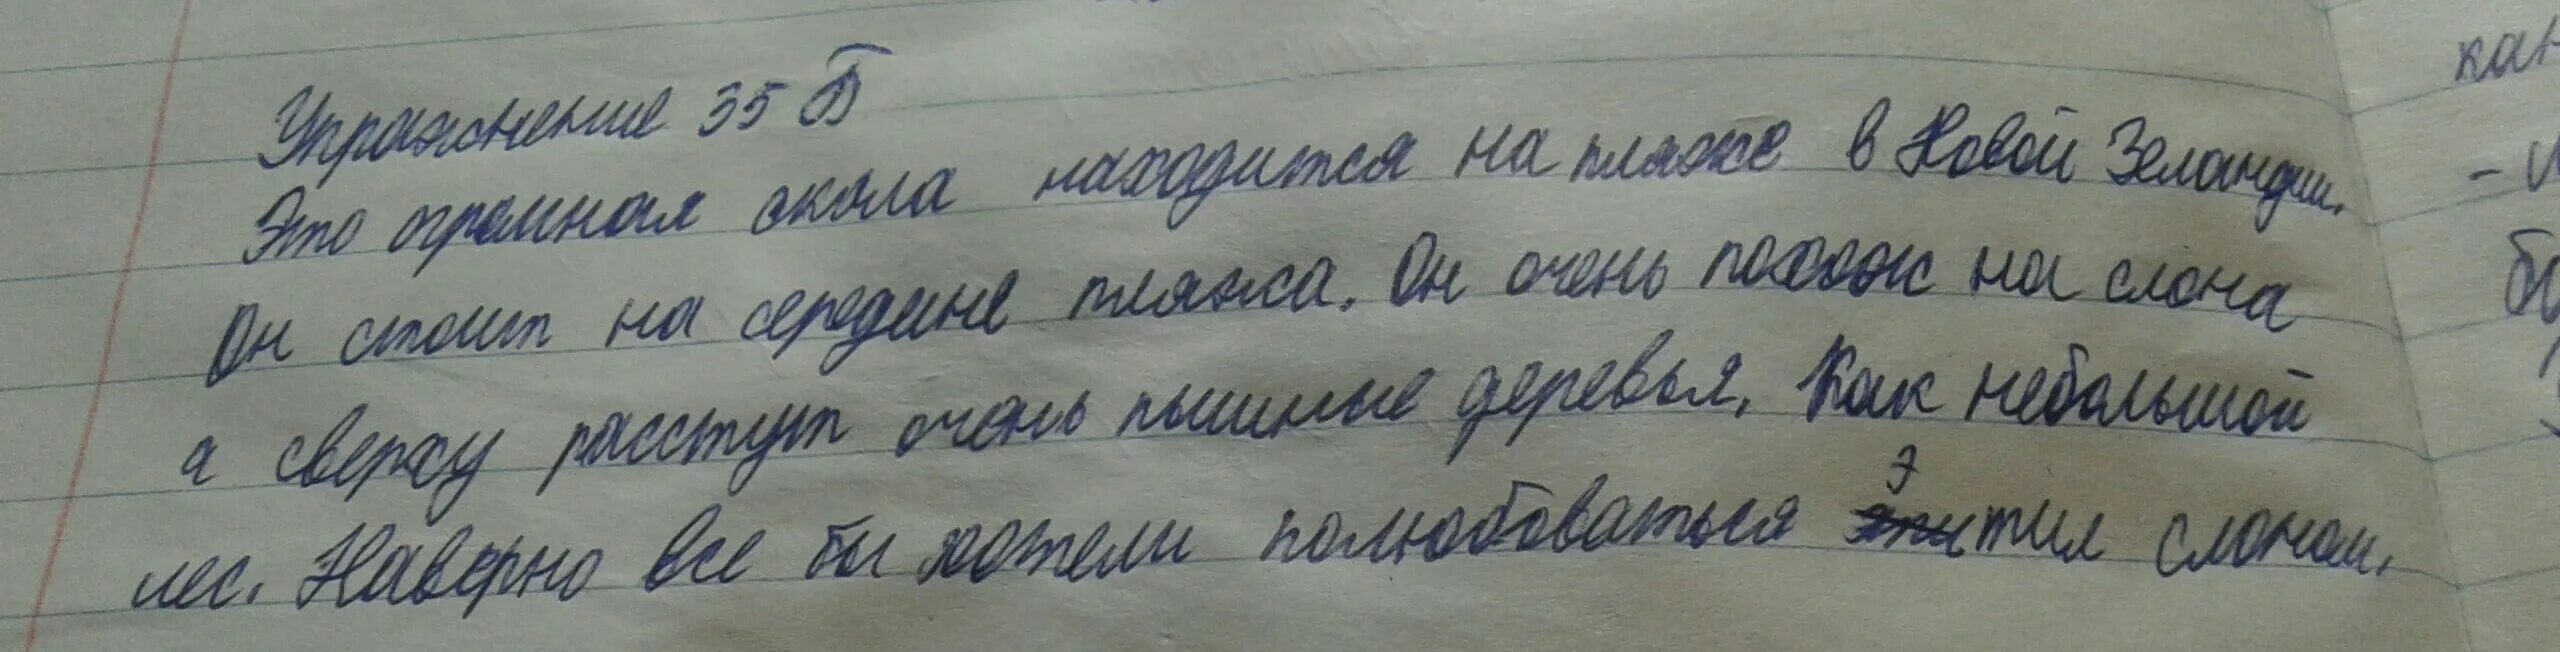 Упражнение 35 Б
Это огромная скала находится на пляже в Новой Зеландии.
Он стоит на середине пляжа. Он очень похож на слона
а сверху расстут очень пышные деревья. Как небольшой
лес. Наверно все бы хотели полюбоваться Этим слоном.
кан